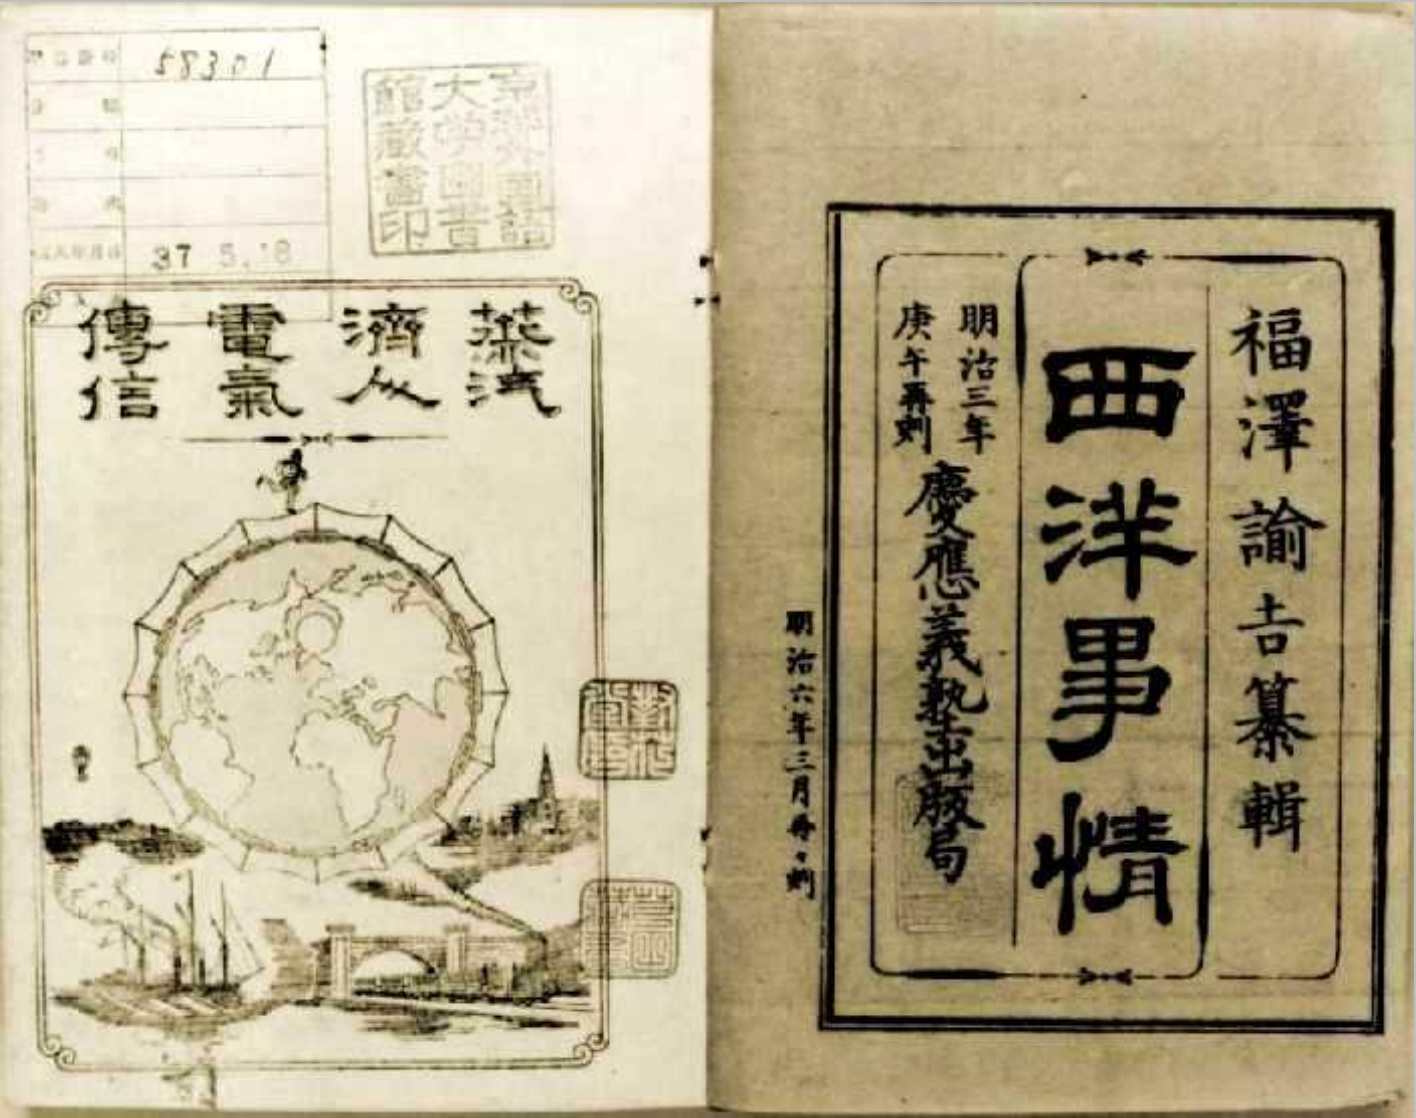 福澤諭吉纂輯
西洋事情
明治三年
庚午再刻
慶應義塾出版局
明治六年三月再々刻
58301
37 5.18
京都外国語
大学図書
館蔵書印
蒸汽
濟人
電氣
傳信